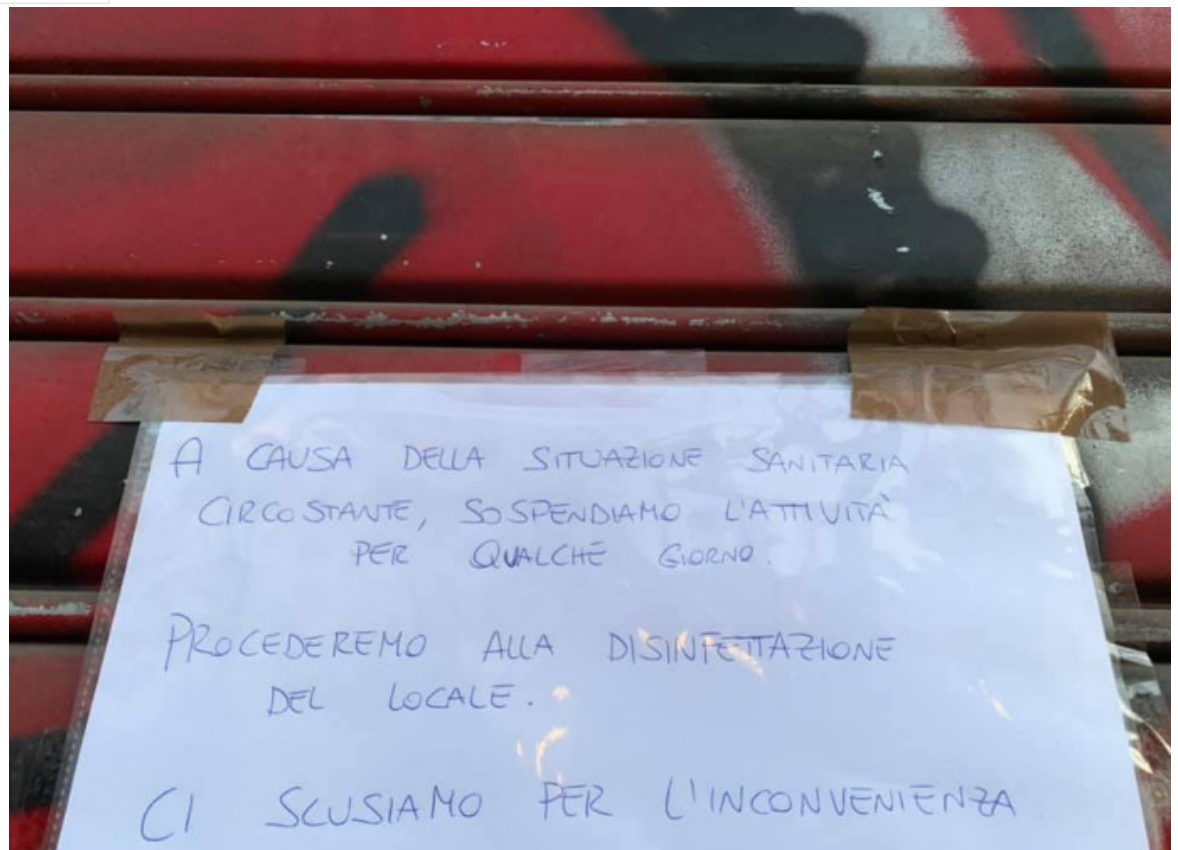 A CAUSA DELLA SITUAZIONE SANITARIA
CIRCOSTANTE, SOSPENDIAMO L'ATTIVITÀ
PER QUALCHE GIORNO.
PROCEDEREMO ALLA DISINFETTAZIONE
DEL LOCALE.
CI SCUSIAMO PER L'INCONVENIENZA